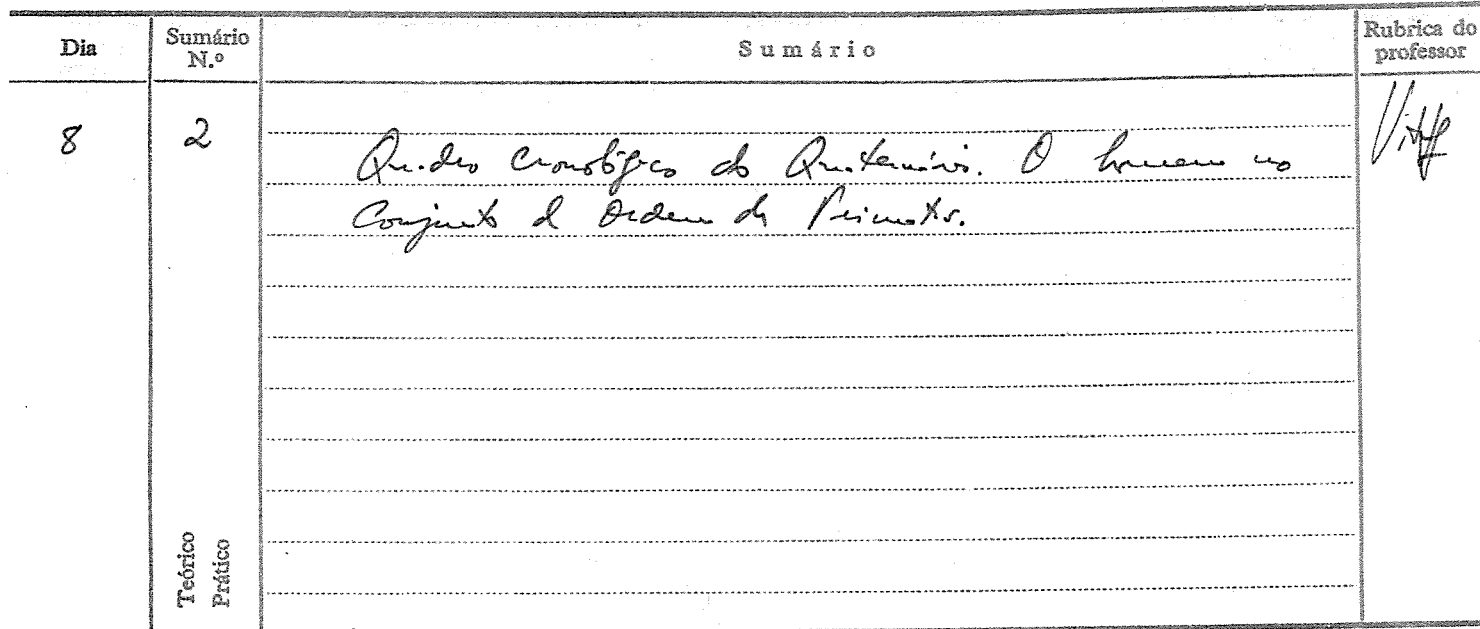 Dia
Sumário
N.º
Sumário
Rubrica do
professor
8
2
Quadro cronológico do Quaternário. O homem no
Conjunto da Ordem dos Primates.
Teórico
Prático